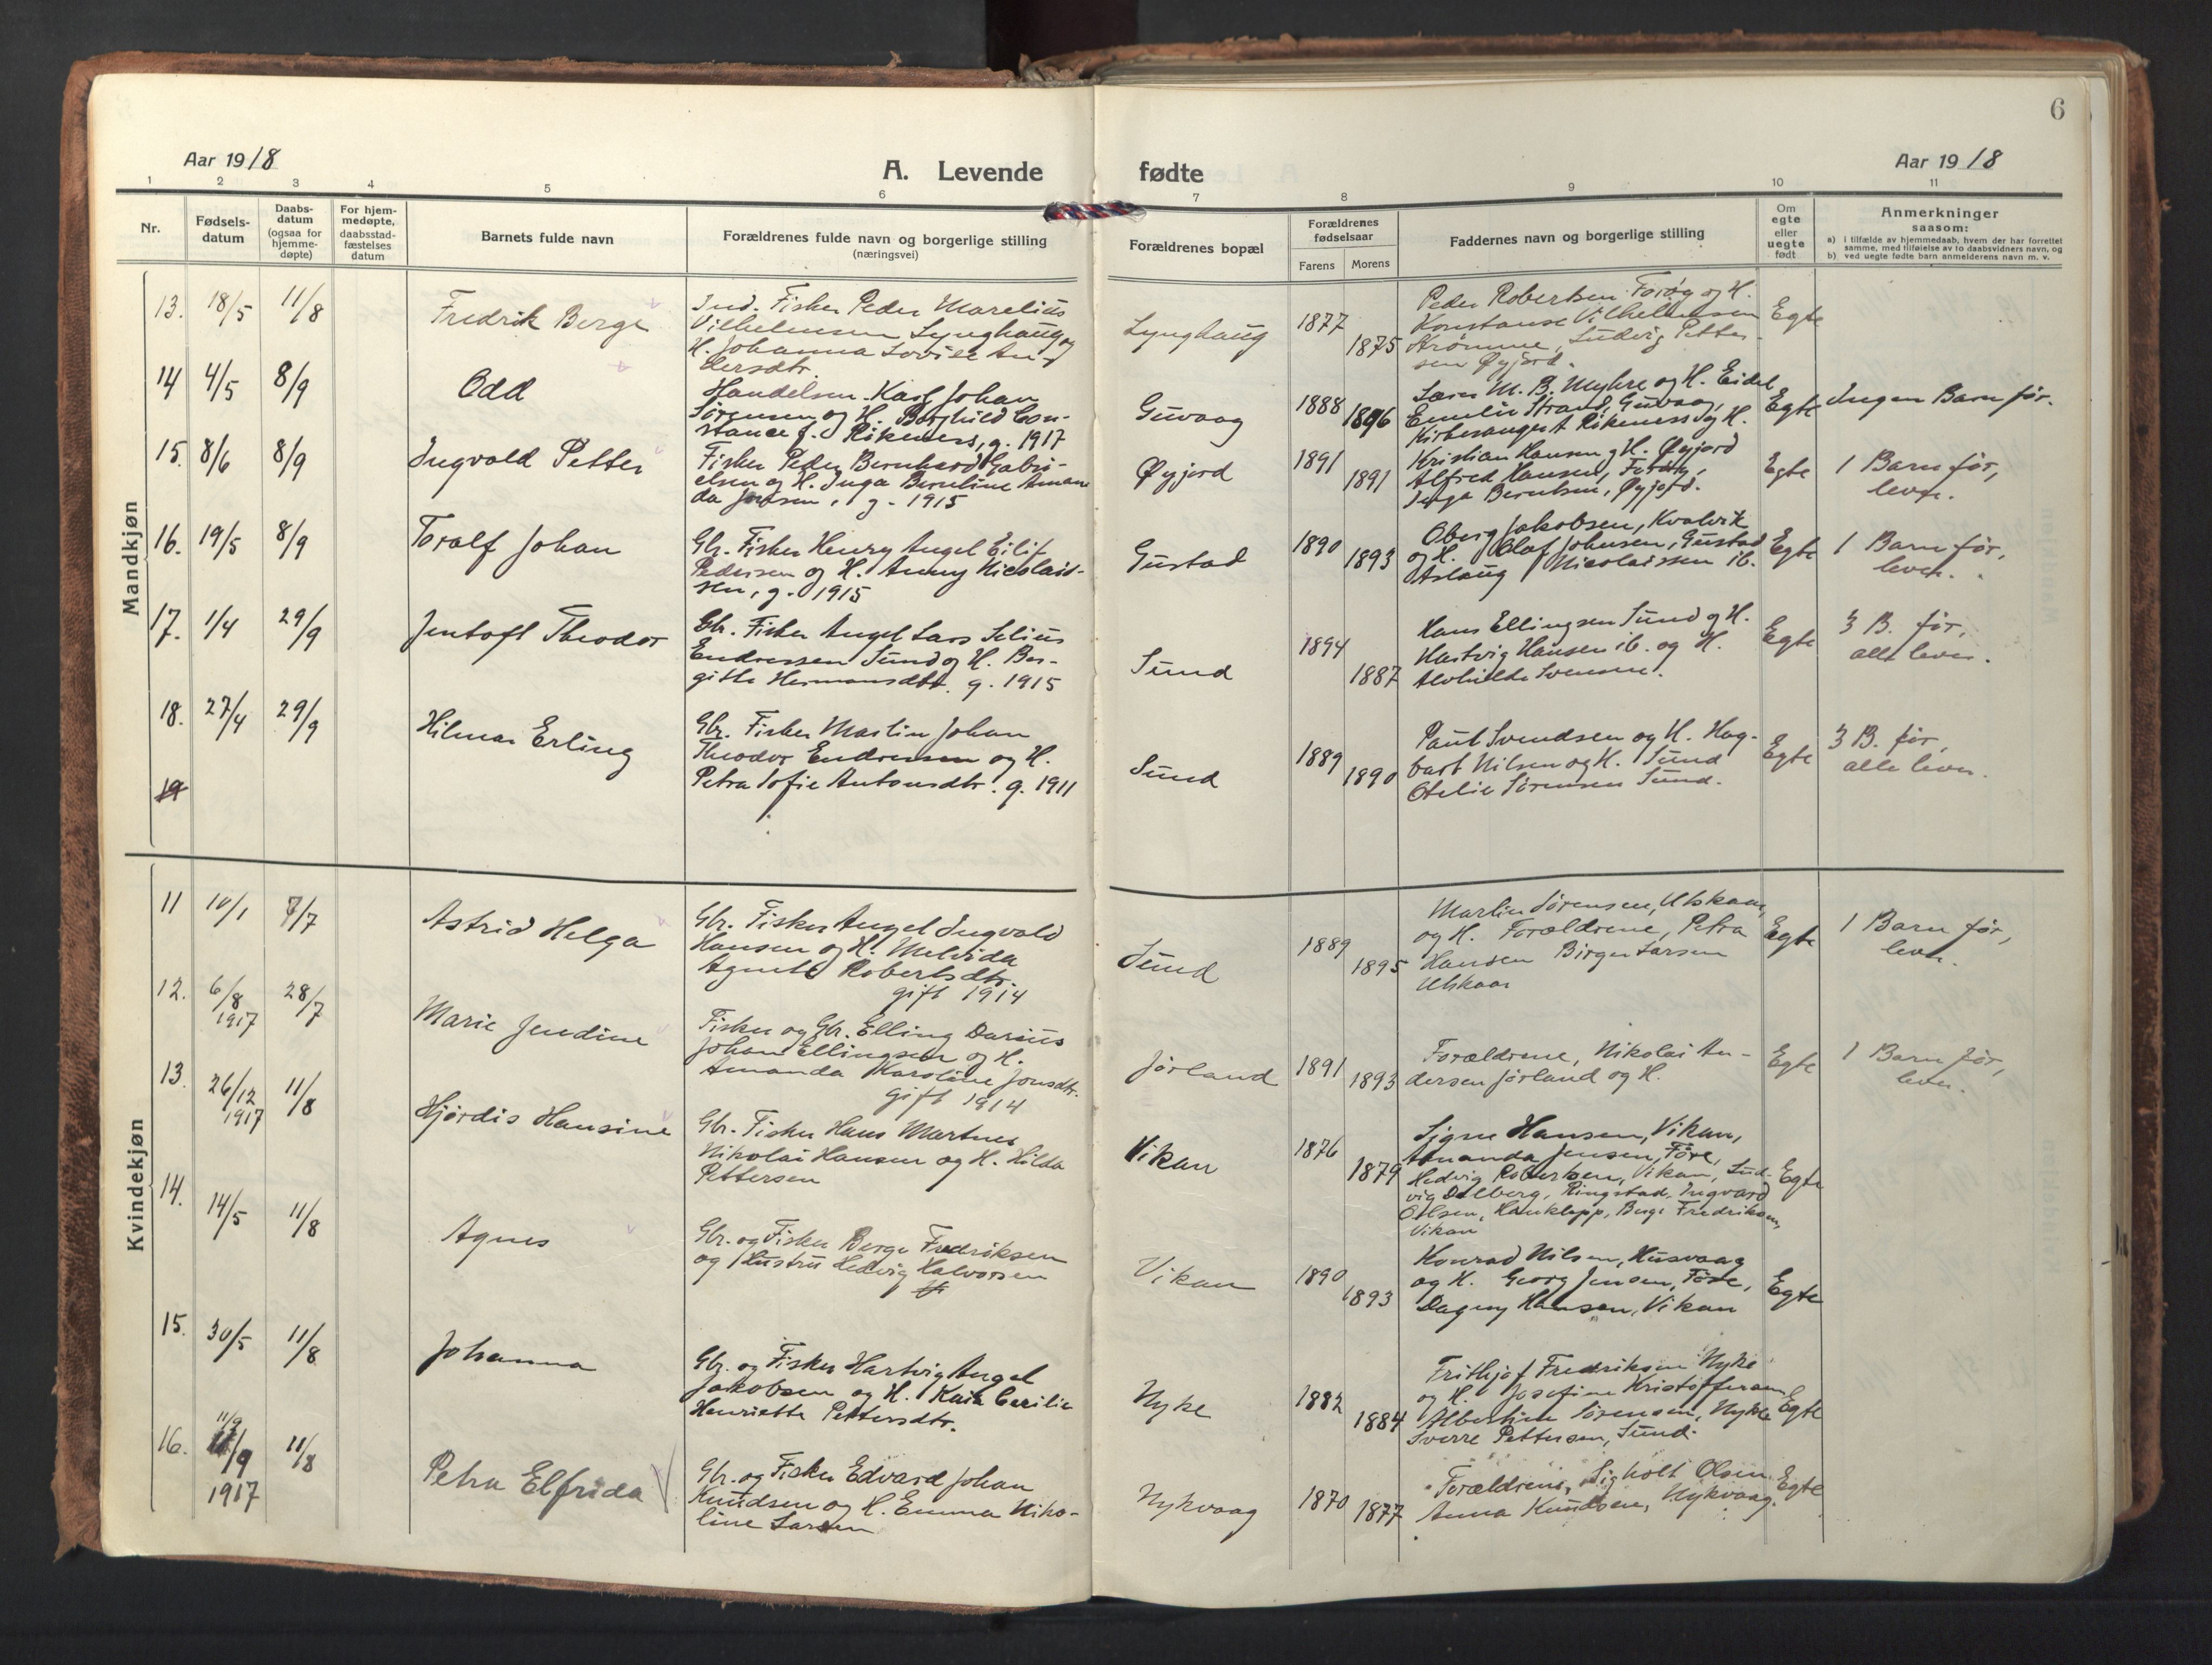 6
Aar 1918
A. Levende fødte
Aar 1918
1 2 3 4 5 6 7 8 9 10 11
Nr.
Fødsels-
datum
Daabs-
datum
(ogsaa for
hjemme-
døpte)
For hjem-
medøpte,
daabsstad-
fæstelses
datum
Barnets fulde navn
Forældrenes fulde navn og borgerlige stilling
(næringsvei)
Forældrenes bopæl
Forældrenes
fødselsaar
Farens Morens
Faddernes navn og borgerlige stilling
Om
egte
eller
uegte
født
Anmerkninger
saasom:
a) i tilfælde av hjemmedaab, hvem der har forrettet
samme, med tilføielse av to daabsvidners navn, og
b) ved uegte fødte barn anmelderens navn m. v.
Mandkjøn
13. 18/5 11/8
Fredrik Berge
Ind. Fisker Peder Marelius
Vilhelmsen Lynghaug og
H. Johanna Lovise An-
dersdtr.
Lynghaug
1877
1875
Peder Robertsen Forøy og H.
Konstanse Vilhelmsen
Strømme, Ludvig Petter-
sen Øyjord.
Egte
14 4/5 8/9
Odd
Handelsm. Karl Johan
Sørensen og H. Borghild Con-
stance f. Rikenes, g. 1917
Guvaag
1888
1896
Lærer M. B. Myhre og H. Eidet
Emelie Strand, Guvaag,
Kirkesanger A Rikenes og H.
Egte
Ingen Barn før.
15. 8/6 8/9
Ingvald Petter
Fisker Peder Bernhard Gabri-
elsen og H. Inga Berntine Aman
da Jensen, g. 1915
Øyjord
1891
1891
Kristian Hansen og H. Øyjord
Alfred Hansen, Forøy,
Inga Berntsen, Øyjord.
Egte
1 Barn før,
lever.
16. 19/5 8/9
Toralf Johan
Gbr. Fisker Henry Angel Eilif
Pedersen og H. Anny Nicolais-
sen, g. 1915
Gustad
1890
1893
Oberg Jakobsen, Kvalvik
og H. Olaf Johnsen, Gustad
Aslaug Nicolaissen ib.
Egte
1 Barn før,
lever.
17. 1/4 29/9
Jentoft Theodor
Gbr. Fisker Angel Lars Selius
Endressen Sund og H. Ber-
gitte Hermansdtr. g. 1915
Sund
1894
1887
Hans Ellingsen Sund og H.
Hartvig Hansen ib. og H.
Alvhilde Svensen.
Egte
3 B. før,
alle lever.
18. 27/4 29/9
Hilmar Erling
Gbr. Fisker Martin Johan
Theodor Endresen og H.
Petra Sofie Antonsdtr. g. 1911
Sund
1889
1890
Paul Svendsen og H. Hag-
bart Nilsen og H. Sund
Otelie Sørensen Sund.
Egte
3 B. før,
alle lever.
19
Kvindekjøn
11 10/1 7/7
Astrid Helga
Gbr. Fisker Angel Ingvald
Hansen og H. Melvida
Agnete Robertsdtr.
gift 1914
Sund
1889
1895
Martin Sørensen, Ulskaar,
og H. Forældrene, Petra
Hansen Birger Larsen
Ulskaar
Egte
1 Barn før,
lever.
12. 6/8 1917 28/7
Marie Jendine
Fisker og Gbr. Elling Darius
Johan Ellingsen og H.
Amanda Karoline Jonsdtr.
gift 1914
Jørland
1891
1893
Forældrene, Nikolai An-
dersen Jørland og H.
Egte
1 Barn før,
lever.
13. 26/12 1917 11/8
Hjørdis Hansine
Gbr. Fisker Hans Martnes
Nikolai Hansen og H. Hilda
Pettersen
Vikan
1876
1879
Signe Hansen, Vikan,
Amanda Jensen, Føre,
Hedvig Robertsen, Vikan, Lud-
vig Dalberg, Ringstad, Ingvard
Olsen, Hauklepp, Berge Fredriksen,
Vikan
Egte
14. 14/5 11/8
Agnes
Gbr. og Fisker Berge Fredriksen
og Hustru Hedvig Halvorsen
Vikan
1890
1893
Konrad Nilsen, Husvaag
og H. Georg Jensen, Føre,
Dagny Hansen, Vikan
Egte
15. 30/5 11/8
Johanna
Gbr. og Fisker Hartvig Angel
Jakobsen og H. Kaia Cecilie
Henriette Pettersdtr.
Nyke
1882
1884
Frithjof Fredriksen Nyke
og H. Josefine Kristoffersen
Albertine Sørensen, Nyke
Sverre Pettersen, Sund.
Egte
16. 11/9 11/9 1917 11/8
Petra Elfrida
Gbr. og Fisker Edvard Johan
Knudsen og H. Emma Niko-
line Larsen
Nykvaag
1870
1877
Forældrene, Sigholt Olsen
Anna Knudsen, Nykvaag.
Egte